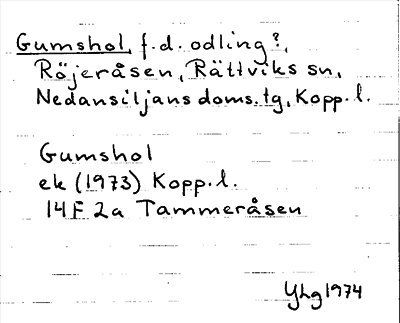 Gumshol f.d. odling?,
Röjeråsen, Rättviks sn,
Nedansiljans doms.tg, Kopp.l.
Gumshol
ek (1973) Kopp.l.
14F 2a Tammeråsen
YLg 1974